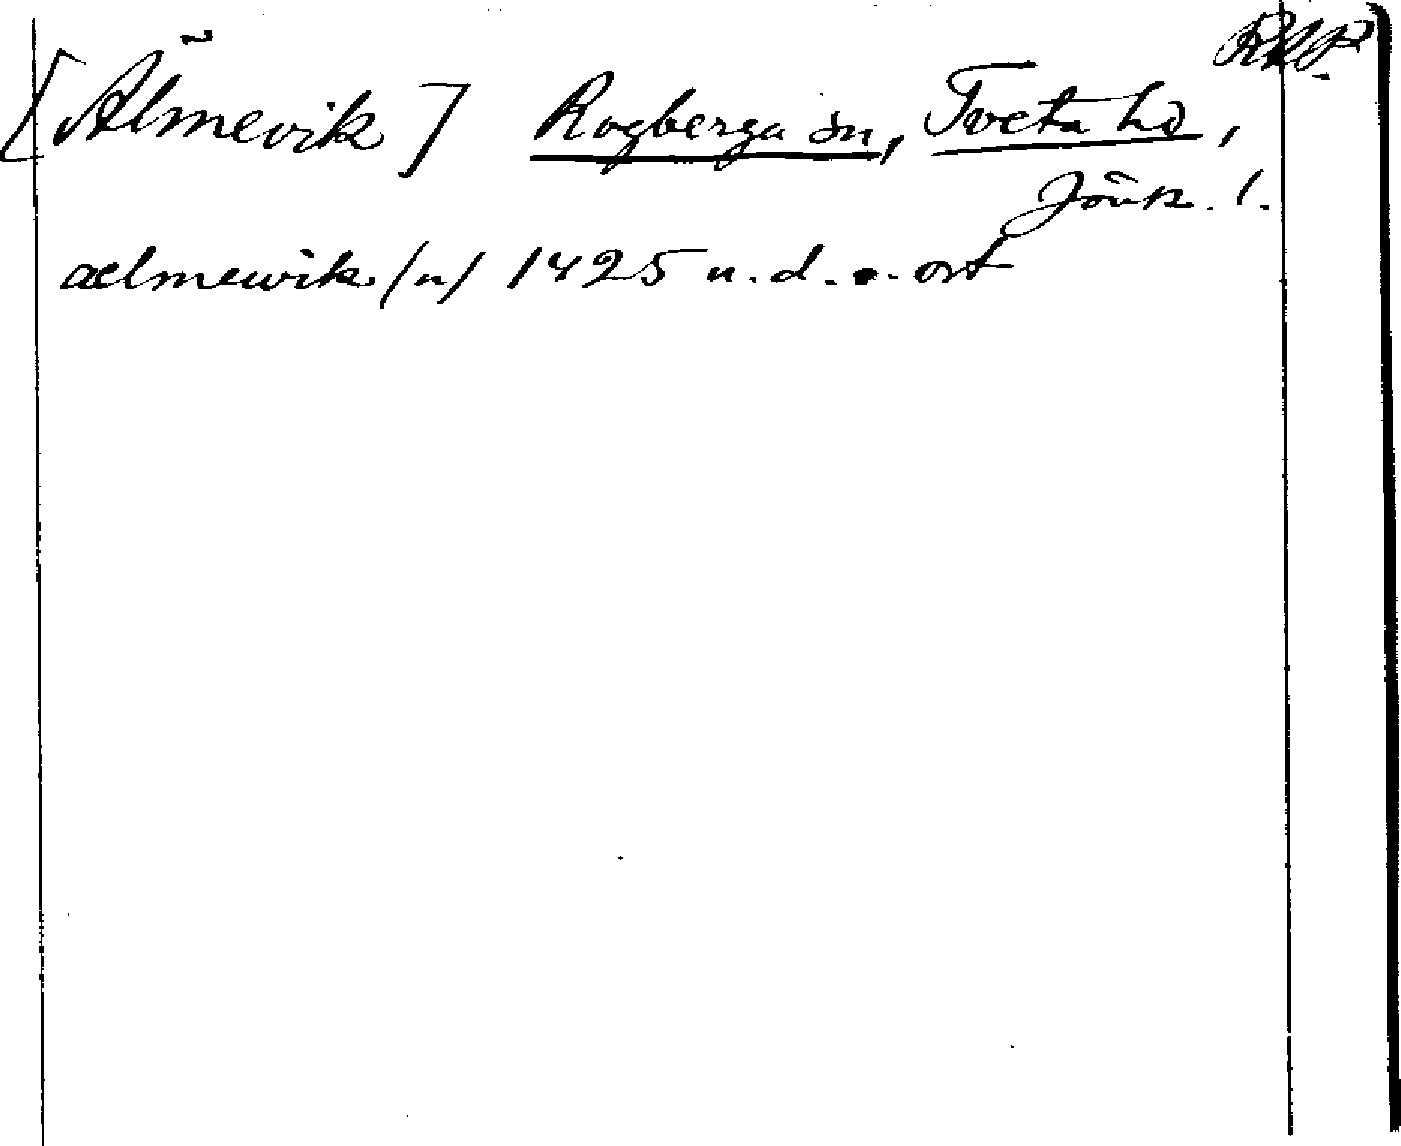 RAP
[Älmevik] Rogberga sn, Tveta hd,
Jönk. l.
aelmewik (n) 1425 u. d. o. ort